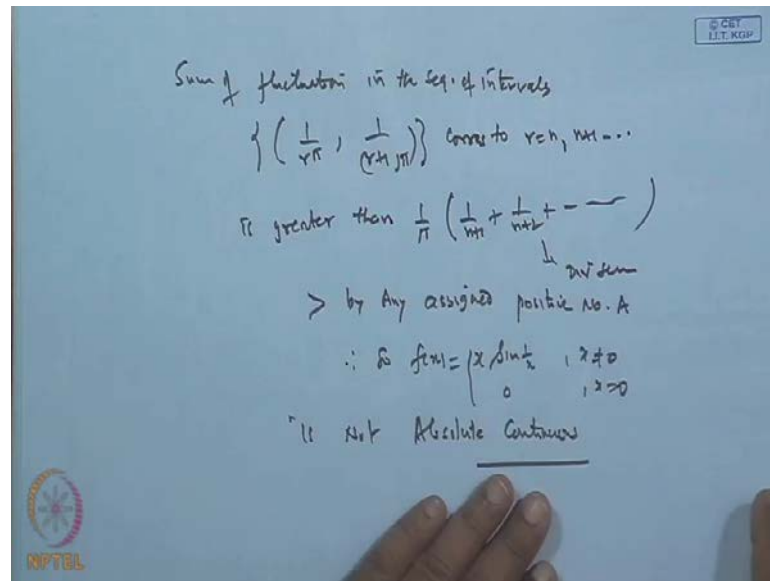 © CET
I.I.T. KGP
Sum of fluctuation in the seq. of intervals
{( 1/rπ , 1/(r+1)π )} corres to r=n, n+1 ...
is greater than 1/π ( 1/n+1 + 1/n+2 + - — )
↓
Div
> by Any assigned positive No. A
∴ f(x) = { x sin 1/x , x≠0
0 , x=0
is Not Absolute Continuous
NPTEL